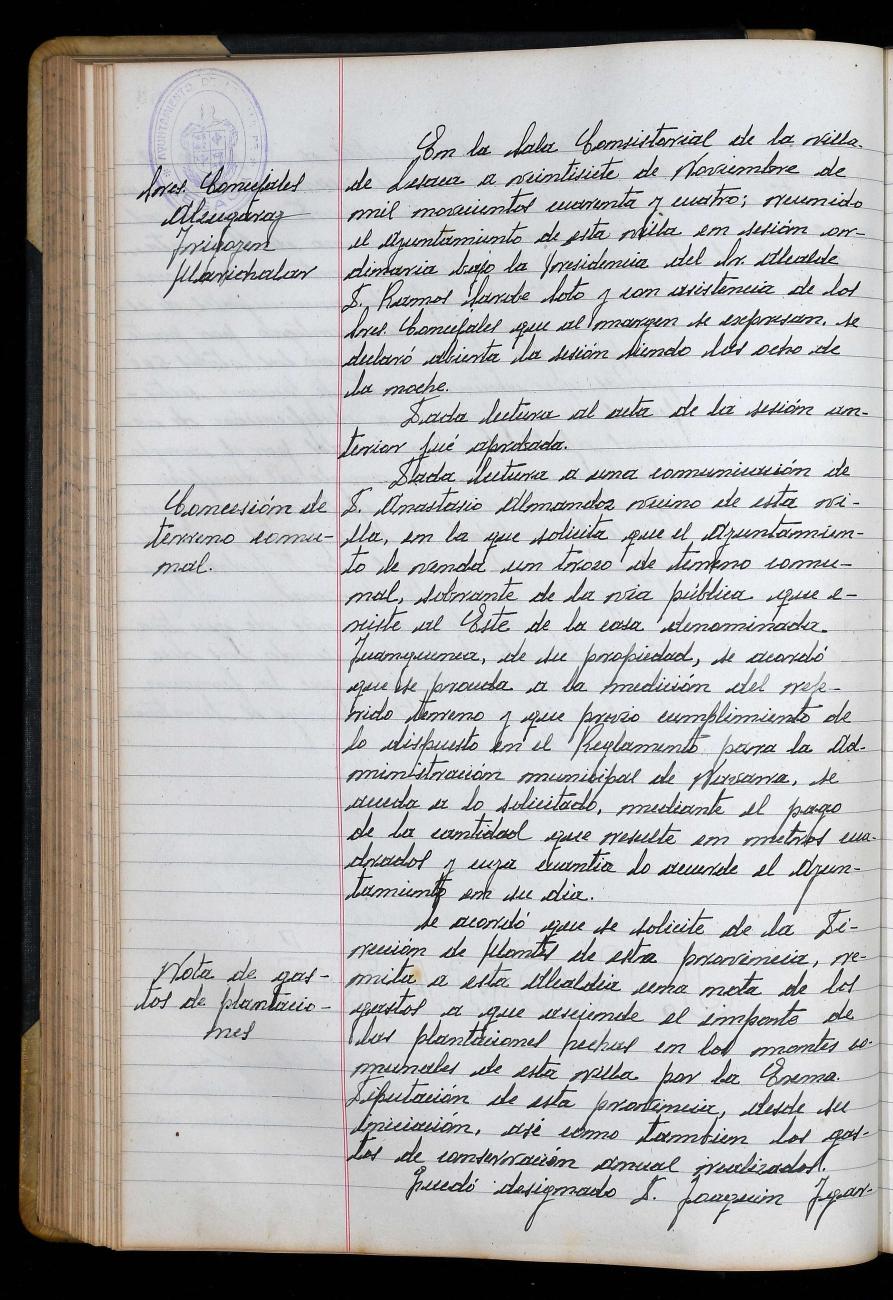 AYUNTAMIENTO DE
Sres. Concejales
Alzugaray
Irigoyen
Marichalar
En la Sala Consistorial de la villa
de Lesaca a veintisiete de Noviembre de
mil novecientos cuarenta y cuatro; reunido
el Ayuntamiento de esta villa en sesión or-
dinaria bajo la presidencia del Sr. Alcalde
D. Ramos Sarobe Soto y con asistencia de los
Sres. Concejales que al margen se expresan, se
declaró abierta la sesión siendo las ocho de
la noche.
Dada lectura al acta de la sesión an-
terior fué aprobada.
Concesión de
terreno comu-
nal.
Dada lectura a una comunicación de
D. Anastasio Almandoz vecino de esta vi-
lla, en la que solicita que el Ayuntamien-
to le venda un trozo de terreno comu-
nal, sobrante de la via pública que e-
xiste al Este de la casa denominada
de su propiedad, se acordó
que se proceda a la medición del refe-
rido terreno y que previo cumplimiento de
lo dispuesto en el Reglamento para la Ad-
ministración municipal de Navarra, se
acceda a lo solicitado, mediante el pago
de la cantidad que resulte en metros cua-
drados y cuya cuantia lo acuerde el Ayun-
tamiento en su dia.
Nota de gas-
tos de plantacio-
nes
Se acordó que se solicite de la Di-
rección de Montes de esta provincia, re-
mita a esta Alcaldia una nota de los
gastos a que asciende el importe de
las plantaciones hechas en los montes co-
munales de esta villa por la Excma.
Diputación de esta provincia, desde su
iniciación, asi como tambien los gas-
tos de conservación anual realizados.
Quedó designado D. Joaquin Igar-